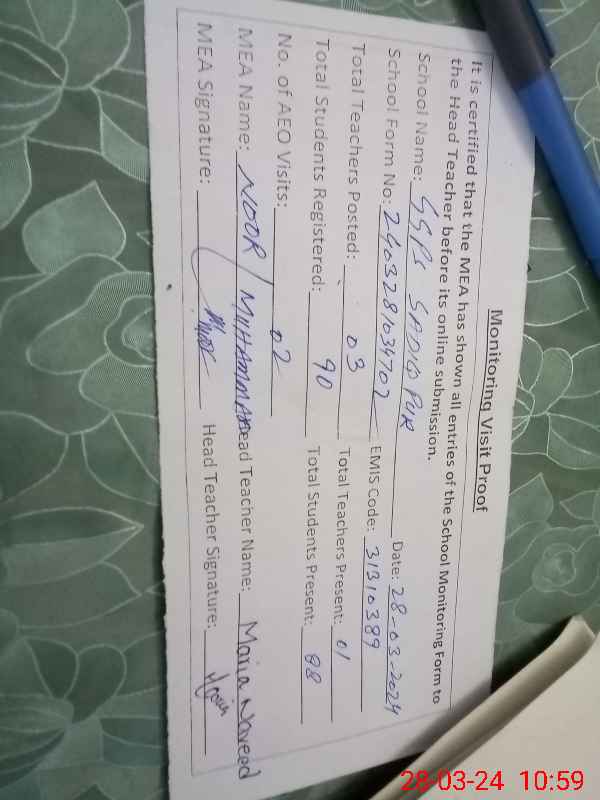 Monitoring Visit Proof
It is certified that the MEA has shown all entries of the School Monitoring Form to
the Head Teacher before its online submission.
School Name: GGPS SADIQ PUR Date: 28-03-2024
School Form No: 2403281034702 EMIS Code: 31310389
Total Teachers Posted: 03 Total Teachers Present: 01
Total Students Registered: 90 Total Students Present: 88
No. of AEO Visits: 02
MEA Name: NOOR MUHAMMAD Head Teacher Name: Maria Naveed
MEA Signature: Head Teacher Signature: Maria
28-03-24 10:59